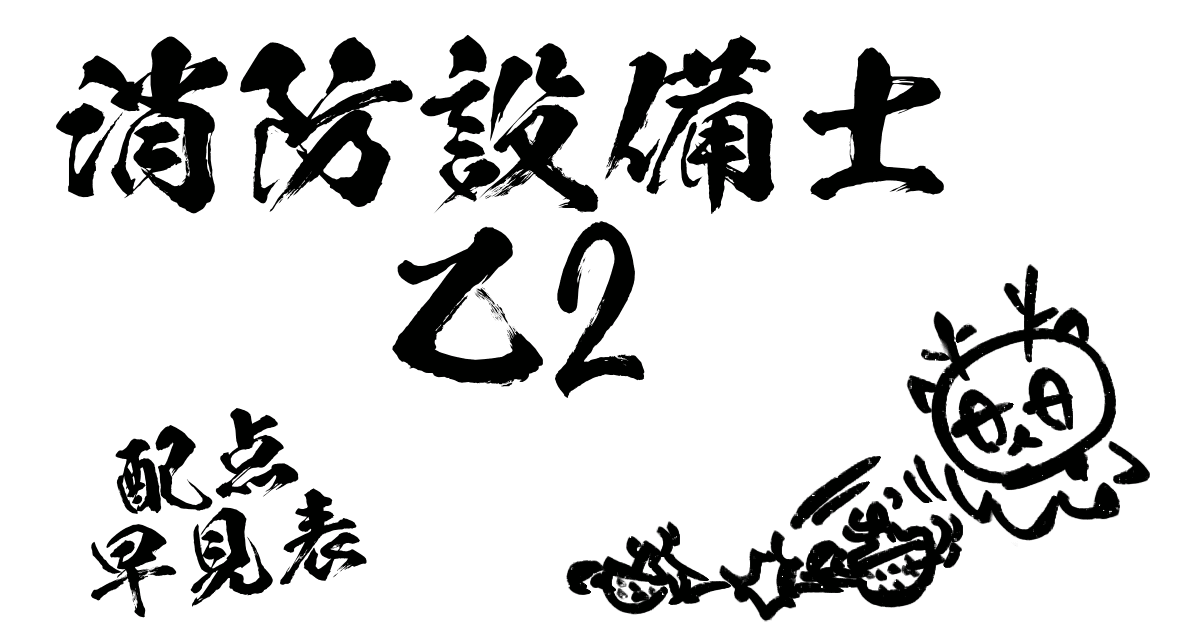 消防設備士
乙2
配点
早見表